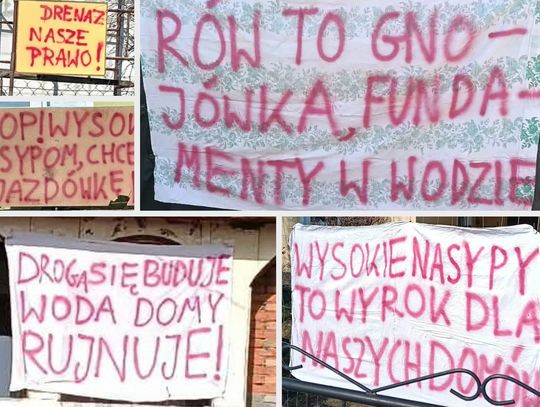 DRENAŻ
NASZE
PRAWO!
RÓW TO GNO-
JÓWKA, FUNDA-
MENTY W WODZIE
OP! WYSO
SYPOM, CHCE
JAZDÓWKĘ
DROGA SIĘ BUDUJE
WODA DOMY
RUJNUJE!
WYSOKIE NASYPY
TO WYROK DLA
NASZYCH DOMÓW